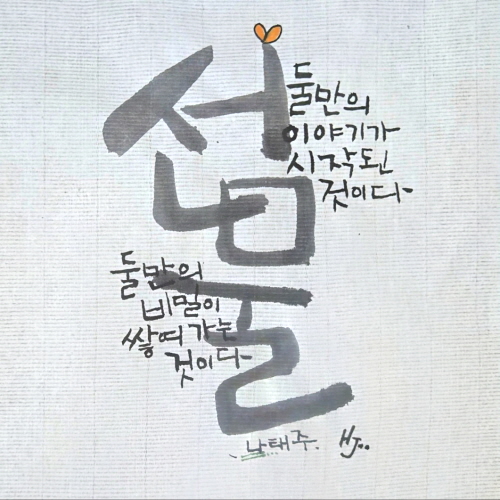 선물
둘만의
이야기가
시작된
것이다
둘만의
비밀이
쌓여가는
것이다
나태주.
HJ..